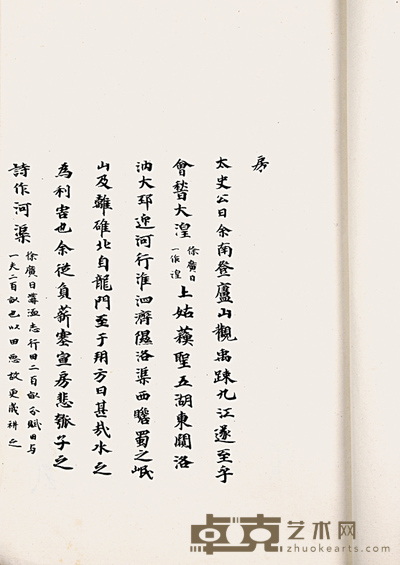 房
太史公曰余南登廬山觀禹疎九江遂至乎
會嵇大湟徐廣曰一作湟上姑蘇望五湖東闚洛
汭大邳迎河行淮泗濟漯洛渠西瞻蜀之岷
山及離碓北自龍門至于朔方曰甚哉水之
為利害也余從負薪塞宣房悲瓠子之
詩作河渠徐廣曰溝洫志行田二百畝分賦田与一夫二百畝也以田惡故更歲耕之
卓克艺术网
zhuokearts.com